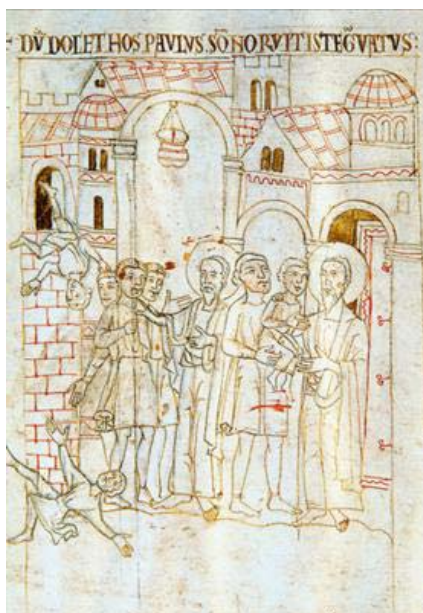 DŪ DOCET HOS PAVLVS SŌNO RVIT ISTE G̃VATVS: